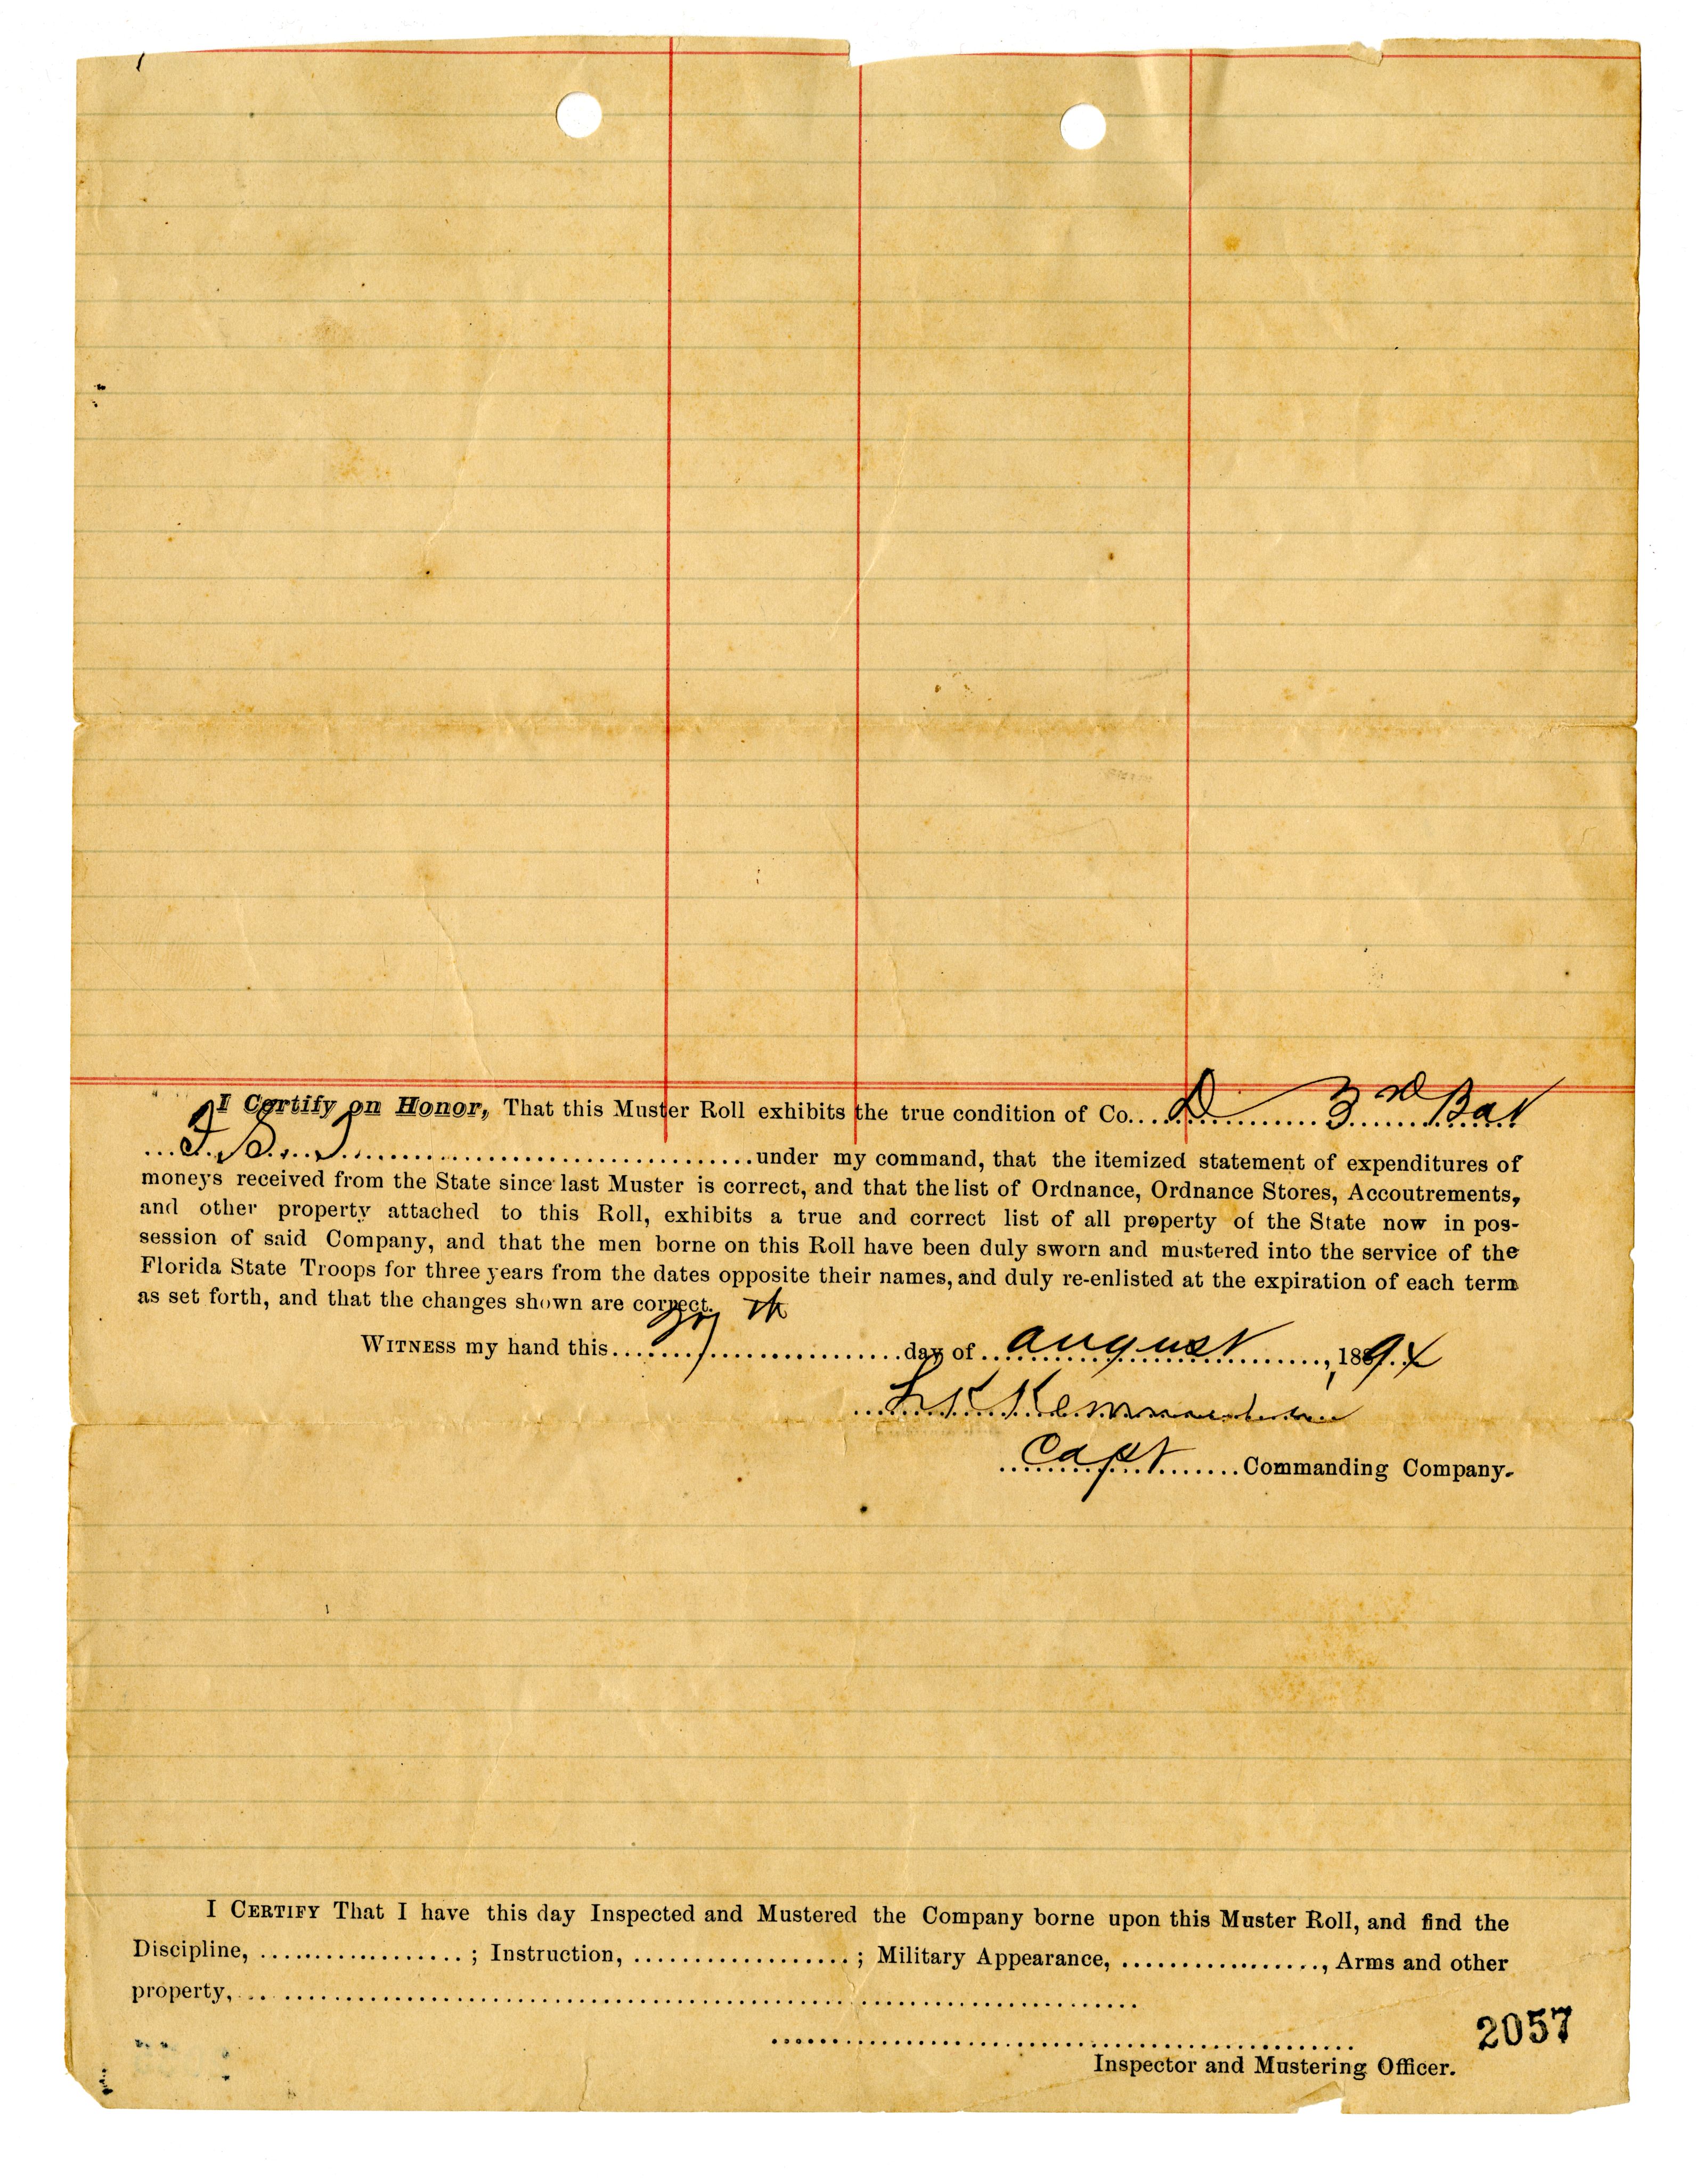 I Certify on Honor, That this Muster Roll exhibits the true condition of Co. D 3rd Bat
F. S. T. under my command, that the itemized statement of expenditures of
moneys received from the State since last Muster is correct, and that the list of Ordnance, Ordnance Stores, Accoutrements,
and other property attached to this Roll, exhibits a true and correct list of all property of the State now in pos-
session of said Company, and that the men borne on this Roll have been duly sworn and mustered into the service of the
Florida State Troops for three years from the dates opposite their names, and duly re-enlisted at the expiration of each term
as set forth, and that the changes shown are correct.
WITNESS my hand this th day of August, 1894
Capt Commanding Company.
I CERTIFY That I have this day Inspected and Mustered the Company borne upon this Muster Roll, and find the
Discipline, ; Instruction, ; Military Appearance, , Arms and other
property,
2057
Inspector and Mustering Officer.